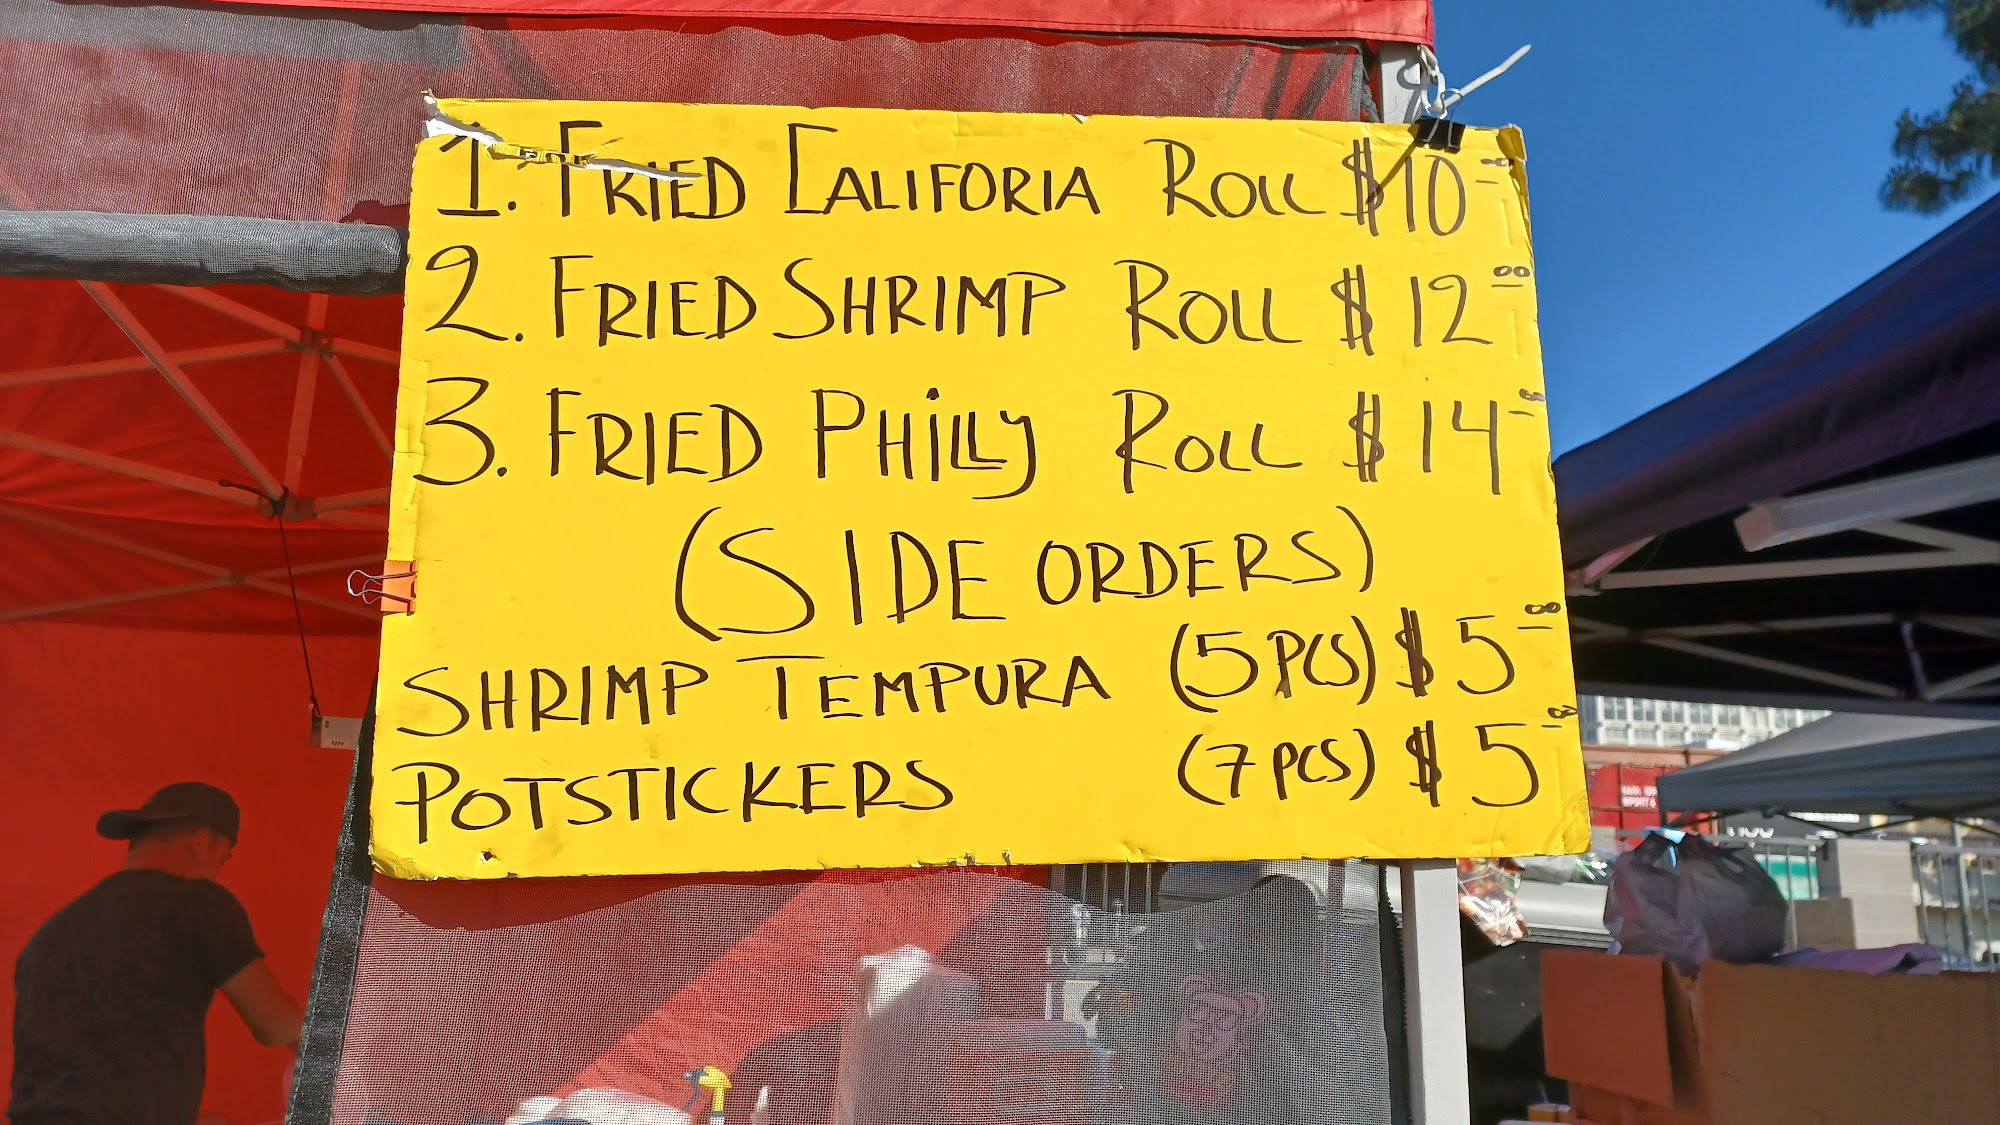 1. FRIED CALIFORIA ROLL $10.00
2. FRIED SHRIMP ROLL $12.00
3. FRIED PHILLY ROLL $14.00
(SIDE ORDERS)
SHRIMP TEMPURA (5 PCS) $5.00
POTSTICKERS (7 PCS) $5.00